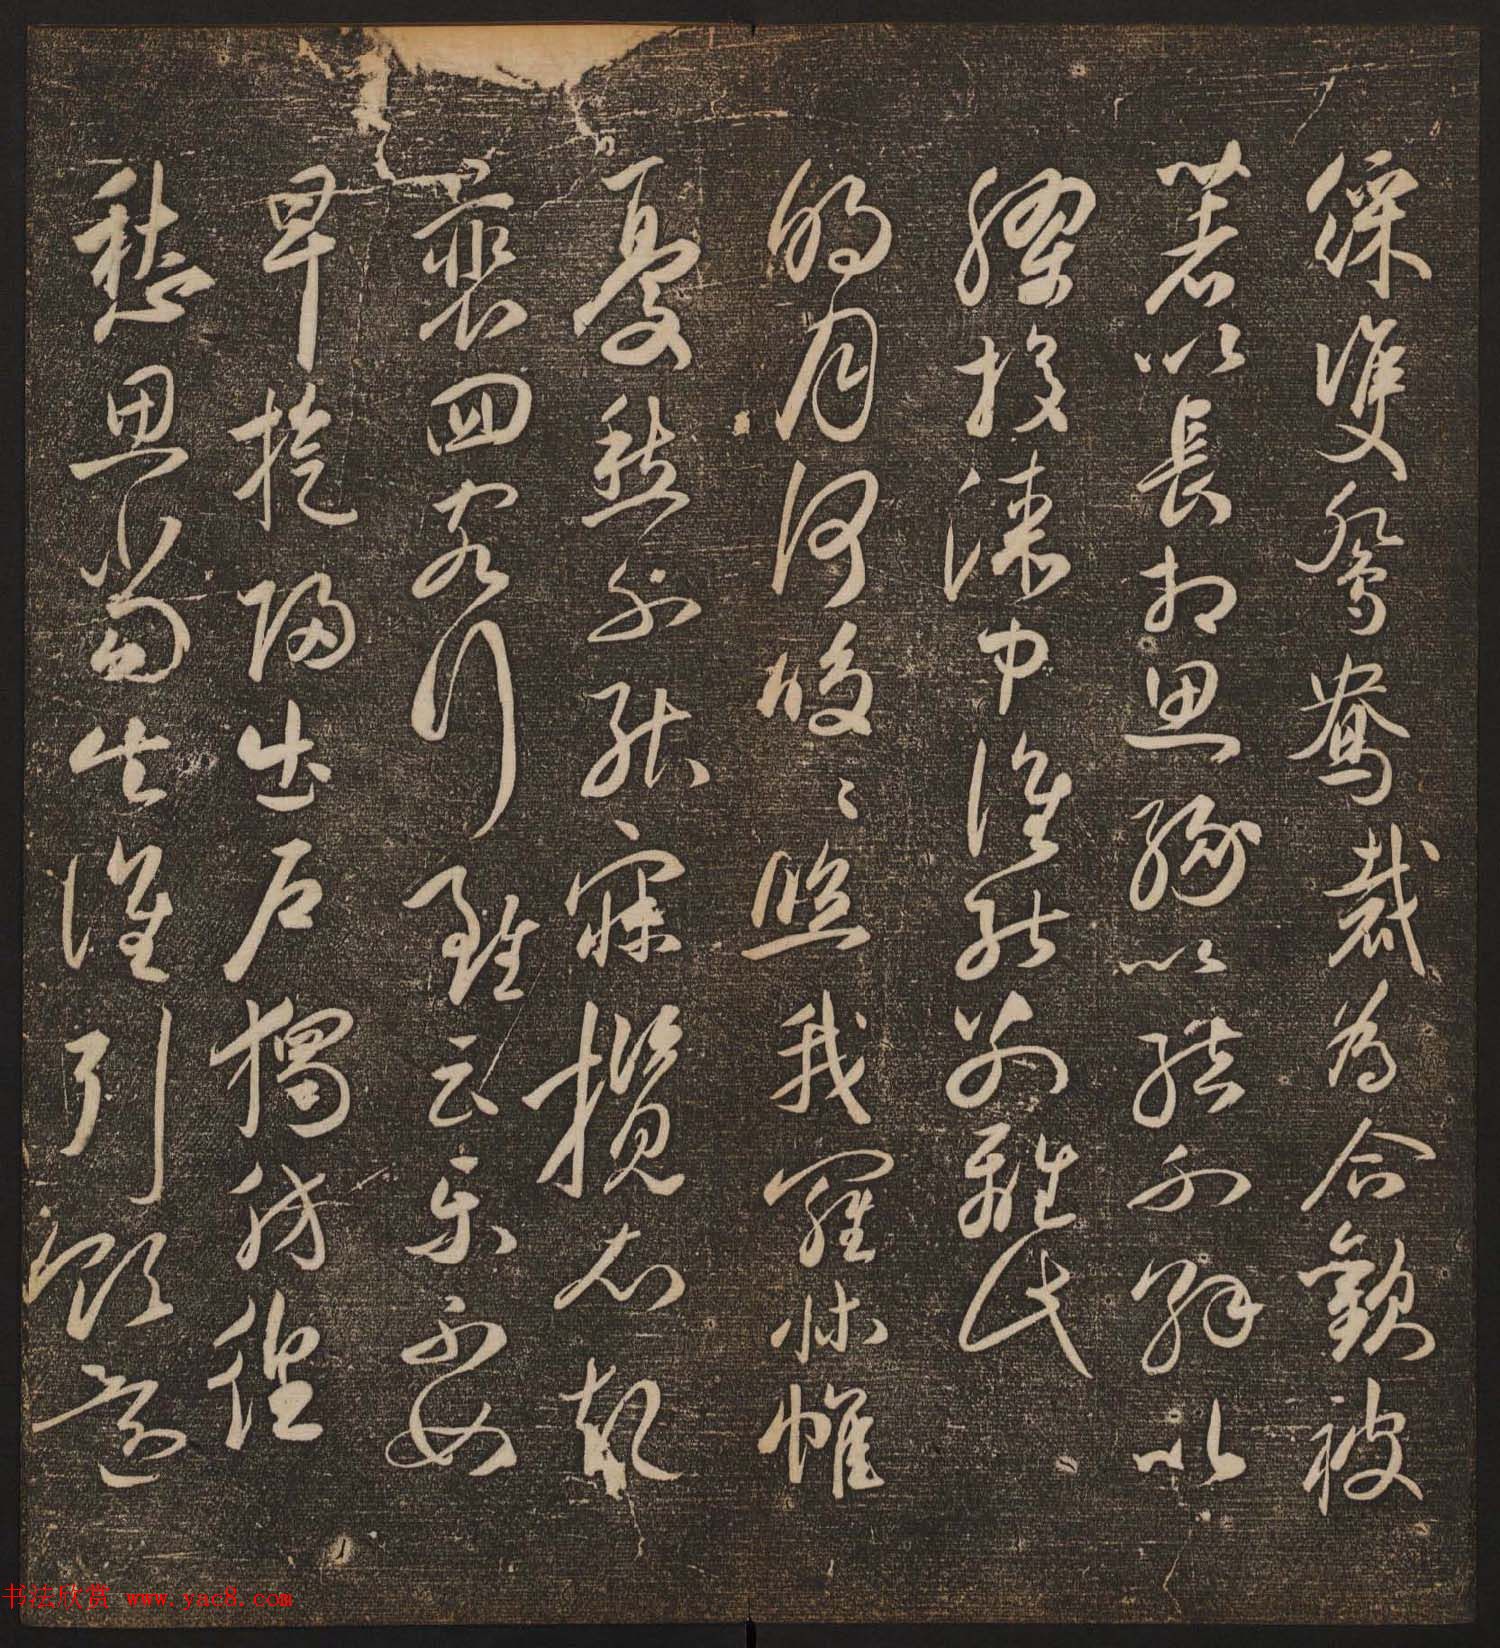 綵雙鴛鴦裁為合歡被
著以長相思緣以結不解以
膠投漆中誰能別離此
明月何皎皎照我羅牀帷
憂愁不能寐攬衣起
裴回客行雖云樂不如
早旋歸出戶獨彷徨
愁思當告誰引領還
书法欣赏 www.yac8.com